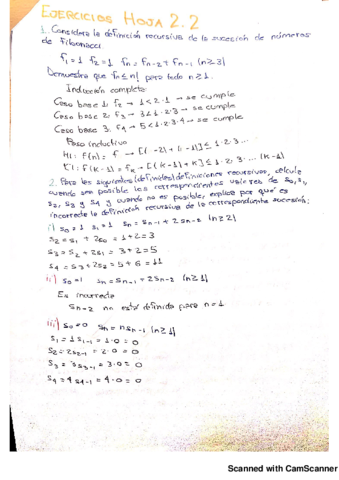 EJERCICIOS HOJA 2.2
1. Considera la definición recursiva de la sucesión de números
de Fibonacci
f₁ = 1 f₂ = 1 fn = fn-2 + fn-1 (n≥3)
Demuestra que fn ≤ n! para todo n ≥ 1.
Inducción completa:
Caso base 1: f2 → 1 < 2·1 → se cumple
Caso base 2: f3 → 3 ≤ 1·2·3 → se cumple
Caso base 3: f4 → 5 < 1·2·3·4 → se cumple
Paso inductivo
HI: f(n) = f → [( -2) + ( -1)] ≤ 1·2·3...
KI: f(k-1) = fk → [(k-1)+k] ≤ 1·2·3·... (k-1)
2. Para las siguientes (definidas) definiciones recursivas, calcula
cuando sea posible los correspondientes valores de s0, s1,
s2, s3 y s4 y cuando no es posible, explica por qué es
incorrecta la definición recursiva de la correspondiente sucesión:
i) s0 = 1 s1 = 1 sn = sn-1 + 2sn-2 (n≥2)
s2 = s1 + 2s0 = 1+2 = 3
s3 = s2 + 2s1 = 3+2 = 5
s4 = s3 + 2s2 = 5+6 = 11
ii) s0 = 1 sn = sn-1 + 2sn-2 (n≥1)
Es incorrecta
sn-2 no está definida para n=1
iii) s0 = 0 sn = nsn-1 (n≥1)
s1 = 1s1-1 = 1·0 = 0
s2 = 2s2-1 = 2·0 = 0
s3 = 3s3-1 = 3·0 = 0
s4 = 4s4-1 = 4·0 = 0
Scanned with CamScanner